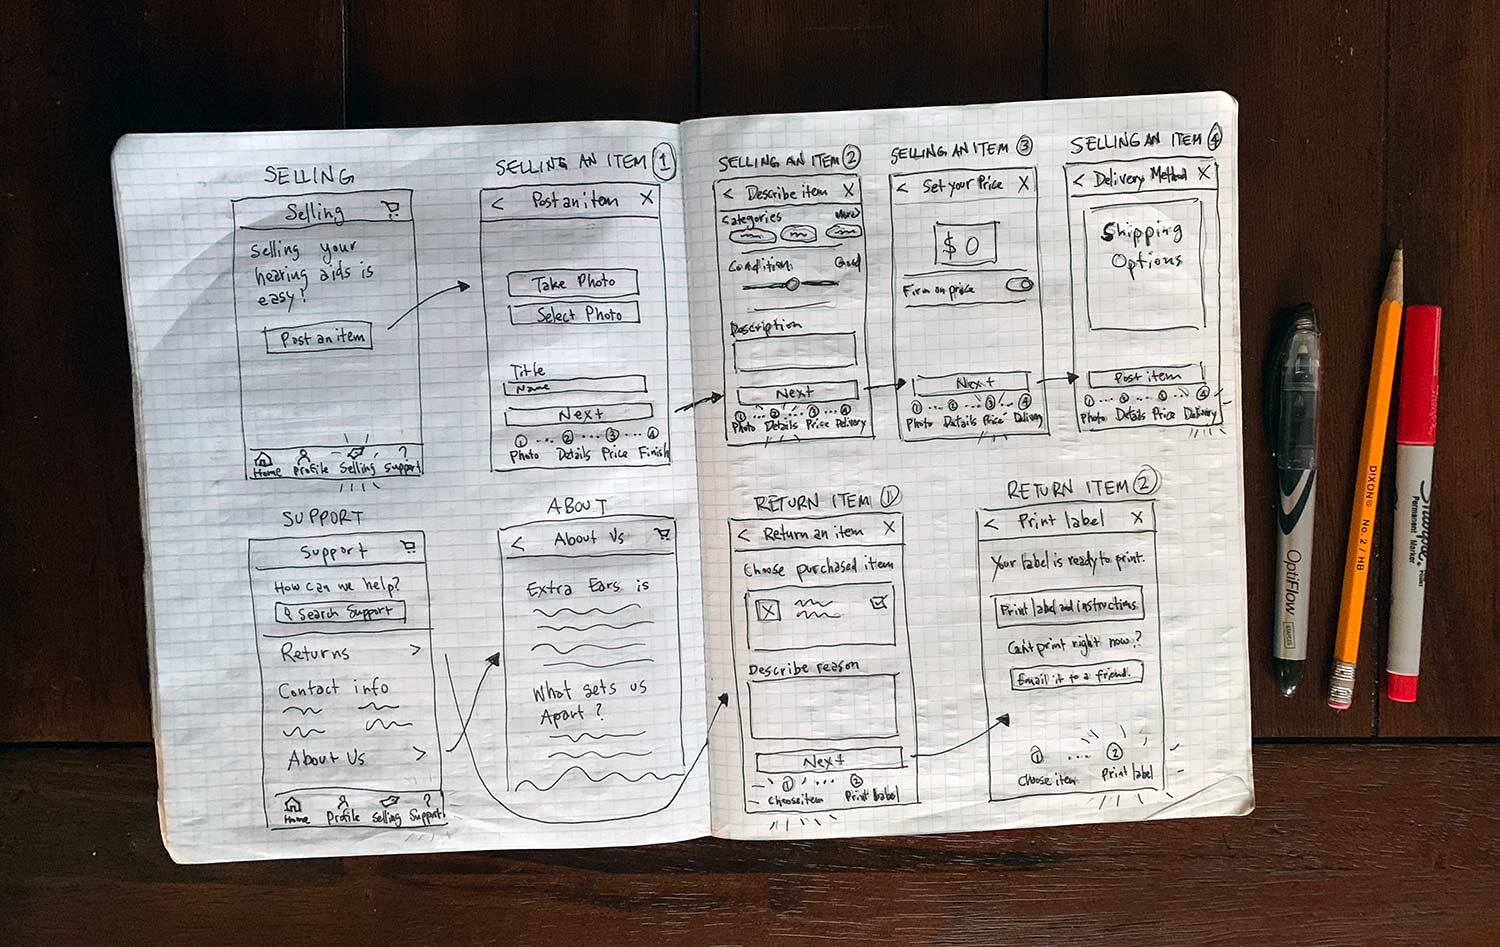 SELLING
Selling
Selling your
hearing aids is
easy!
Post an item
Home Profile Selling Support
SELLING AN ITEM 1
< Post an item X
Take Photo
Select Photo
Title
Name
Next
1 ... 2 ... 3 ... 4
Photo Details Price Finish
SELLING AN ITEM 2
< Describe item X
Categories More>
Condition: Good
Description
Next
1 ... 2 ... 3 ... 4
Photo Details Price Delivery
SELLING AN ITEM 3
< Set your Price X
$0
Firm on price
Next
1 ... 2 ... 3 ... 4
Photo Details Price Delivery
SELLING AN ITEM 4
< Delivery Method X
Shipping
Options
Post item
1 ... 2 ... 3 ... 4
Photo Details Price Delivery
SUPPORT
Support
How can we help?
Search Support
Returns >
Contact info
About Us >
Home Profile Selling Support
ABOUT
< About Us
Extra Ears is
What sets us
Apart?
RETURN ITEM 1
< Return an item X
Choose purchased item
Describe reason
Next
1 ... 2
Choose item Print label
RETURN ITEM 2
< Print label X
Your label is ready to print.
Print label and instructions
Can't print right now?
Email it to a friend.
1 ... 2
Choose item Print label
OptiFlow
DIXON® No. 2 / HB
Sharpie
Permanent
Marker